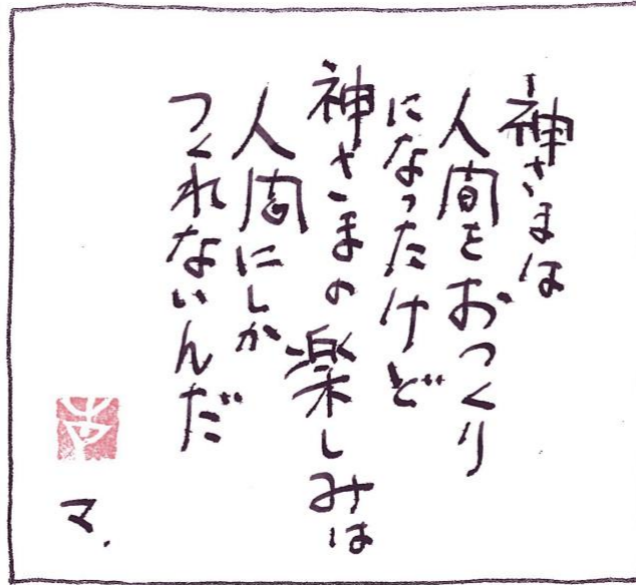 神さまは
人間をおつくり
になったけど
神さまの楽しみは
人間にしか
つくれないんだ
マ.